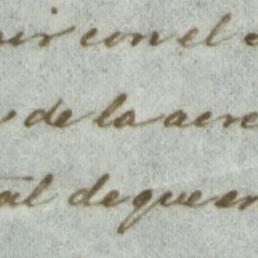 con el
de la acre
tal de que en